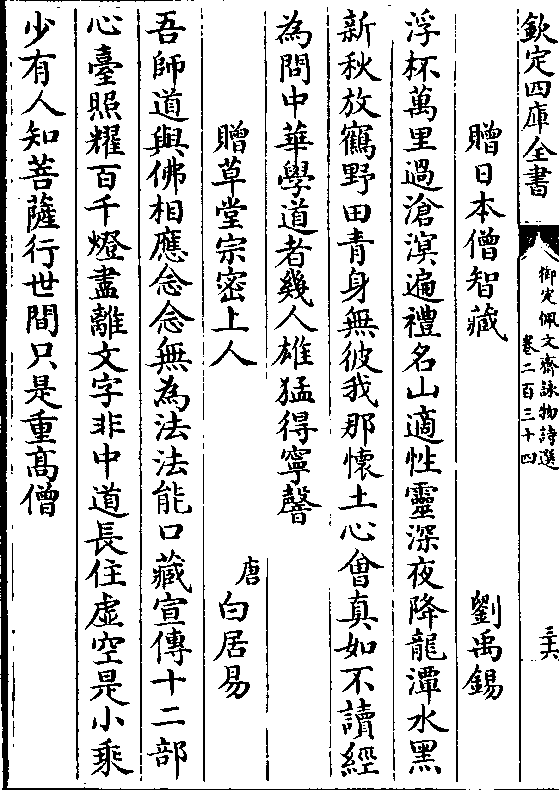 欽定四庫全書
御定佩文齋詠物詩選
卷二百三十四
三六
贈日本僧智藏
劉禹錫
浮杯萬里過滄溟遍禮名山適性靈深夜降龍潭水黑
新秋放鶴野田青身無彼我那懷土心會真如不讀經
為問中華學道者幾人雄猛得寧馨
贈草堂宗密上人
唐
白居易
吾師道與佛相應念念無為法法能口藏宣傳十二部
心臺照耀百千燈盡離文字非中道長住虛空是小乘
少有人知菩薩行世間只是重高僧